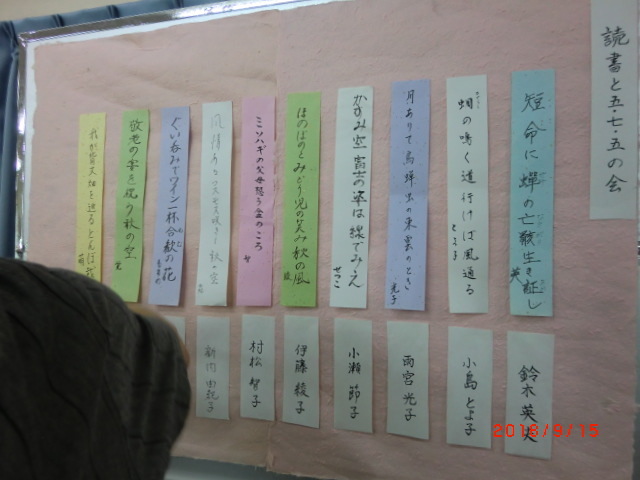 読書と五・七・五の会
短命に蝉の亡骸生き証し 英
鈴木 英夫
蜩の鳴く道行けば風通る とよ子
小島 とよ子
月ありて烏蝉出の東雲のとき 光子
雨宮 光子
かすみ空富士の姿は線でみえ せつこ
小瀬 節子
ほのぼのとみどり児の笑み秋の風 綾
伊藤 綾子
ミソハギの父母想う盆のころ 智
村松 智子
秋の空
新内 由紀子
ぐい呑みでワイン一杯合歓の花
敬老の字を祝う秋の空
我が背丈
を辿るとんぼ
2018/9/15